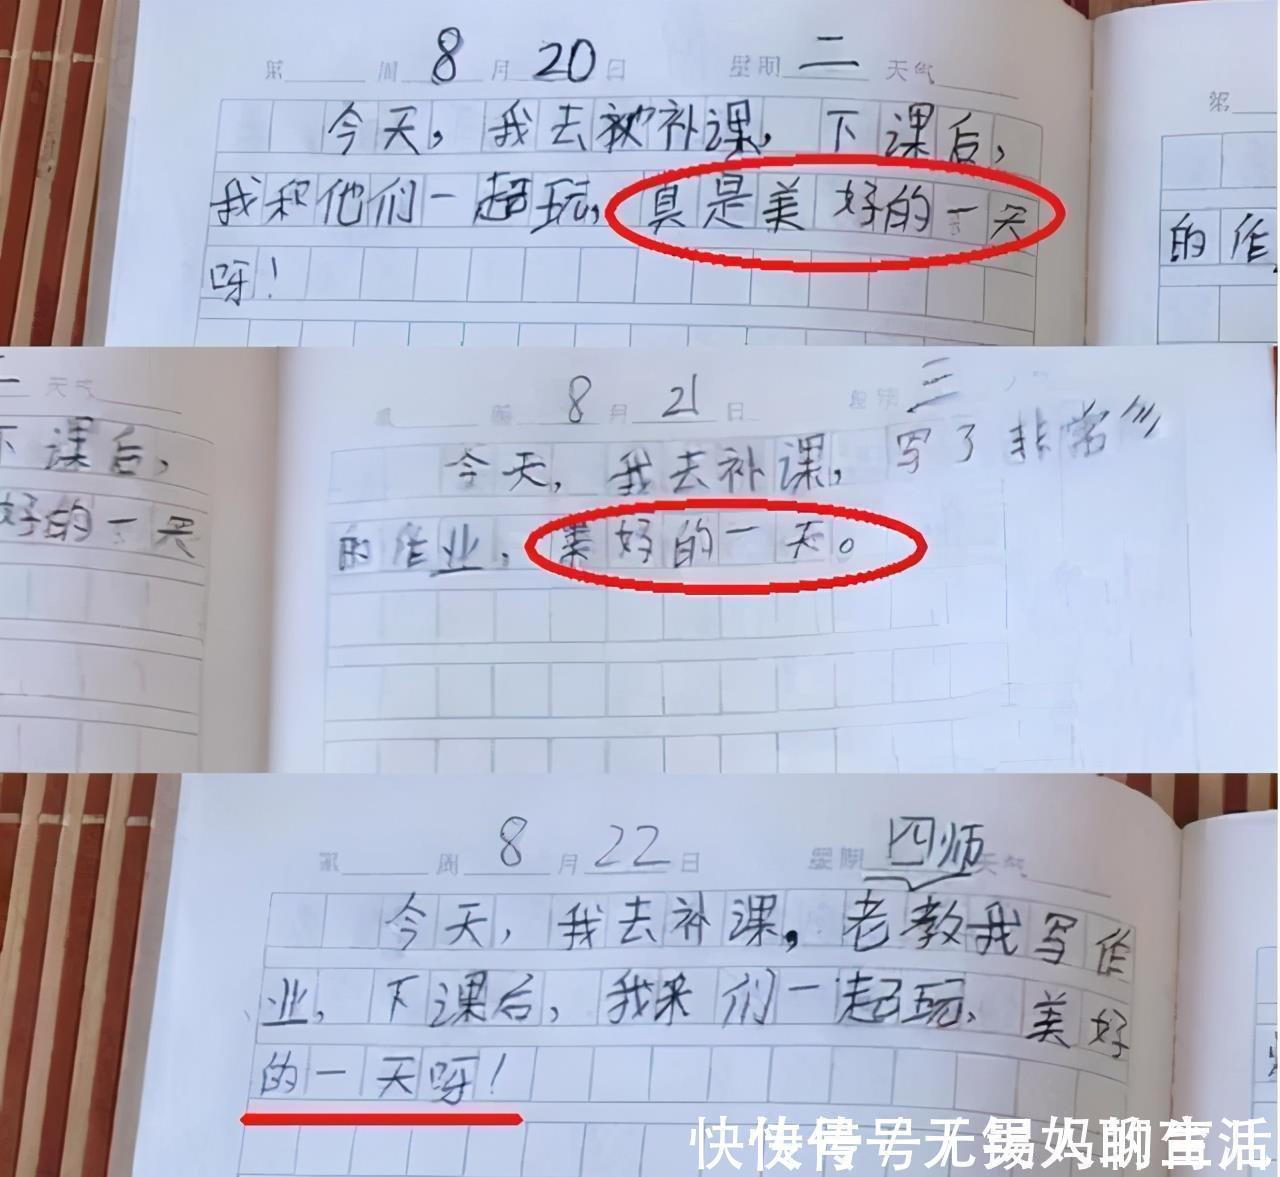 第 周 8 月 20 日 星期 二 天气
今天，我去被补课，下课后，
我和他们一起玩，真是美好的一天
呀！
第
的作
二 天气
下课后，
好的一天
8 月 21 日 星期 三
今天，我去补课，写了非常〃
的作业，美好的一天。
第 周 8 月 22 日 星期 四 天气
师
今天，我去补课，老教我写作
业，下课后，我来们一起玩，美好
的一天呀！